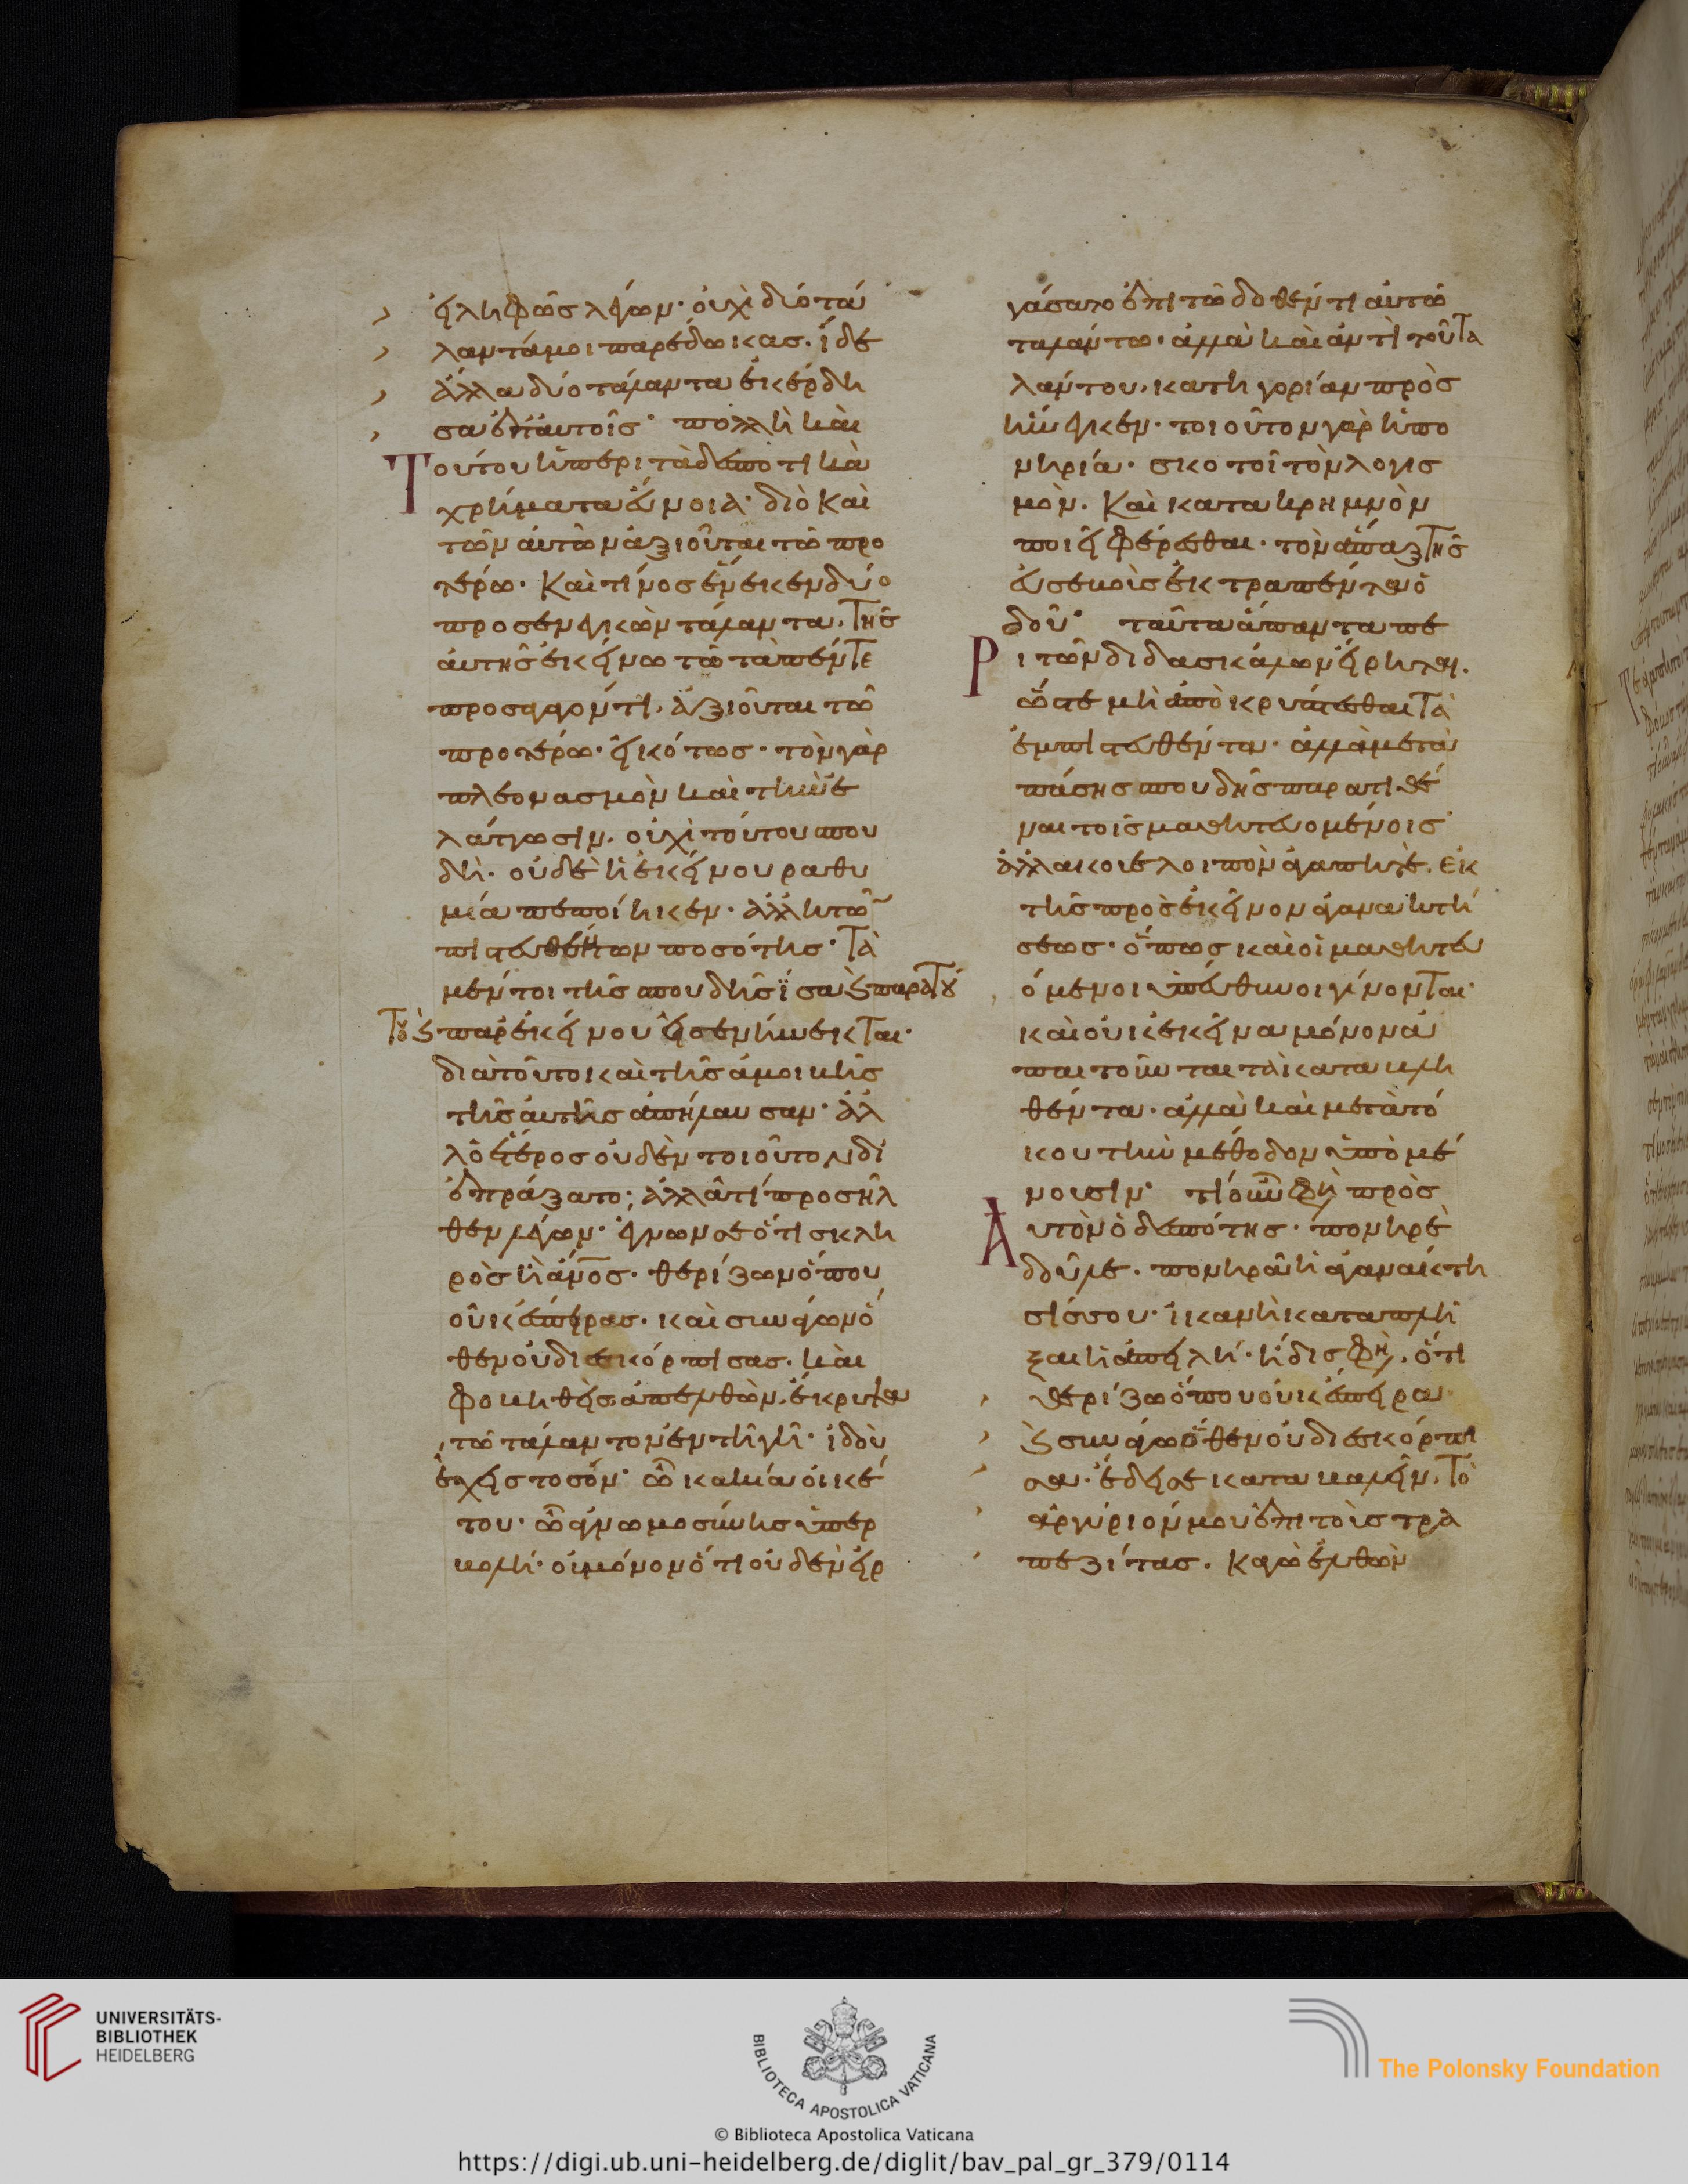 εἰληφὼς λέγων· οὐχὶ δύο τά
λαντά μοι παρέδωκας. ἴδε
ἄλλα δύο τάλαντα ἐκέρδη
σα ἐπ' αὐτοῖς· πολλὴ καὶ
Τούτου ἡ περὶ τὰ δεσποτικὰ
χρήματα εὔνοια· διὸ καὶ
τῶν αὐτῶν ἀξιοῦται τῶ προ
τέρω· καὶ τίνος ἕνεκεν δύο
προσενεγκὼν τάλαντα, τῆς
αὐτῆς ἐκείνω τῶ τὰ πέντε
προσαγαγόντι, ἀξιοῦται τῶ
προτέρω· εἰκότως· τὸν γὰρ
πλεονασμὸν καὶ τὴν ἐ
λάττωσιν. οὐχὶ τούτου σπου
δὴ· οὐδὲ ἡ ἐκείνου ῥαθυ
μία πεποίηκεν· ἀλλ' ἡ τῶν
πιστευθέντων ποσότης· τὰ
μέντοι τῆς σπουδῆς ἴσα ϗ παρὰ τού
του ϗ παρ' ἐκείνου εἰσενήνεκται·
διὰ τοῦτο καὶ τῆς ἀμοιβῆς
τῆς αὐτῆς ἀπήλαυσαν· ἀλ
λ' ὁ ἕτερος οὐδὲν τοιοῦτον δι
επράξατο; ἀλλὰ τί προσῆλ
θεν λέγων· ἔγνων σε ὅτι σκλη
ρὸς εἶ ἄνος· θερίζων ὅπου
οὐκ ἔσπειρας· καὶ συνάγων ὅ
θεν οὐ διεσκόρπισας. καὶ
φοβηθεὶς ἀπελθὼν, ἔκρυψα
τὸ τάλαντον ἐν τῆ γῆ· ἰδοὺ
ἔχεις τὸ σόν· ὢ κακία οἰκέ
του· ὢ ἀγνωμοσύνης ὑπερ
βολή· οὐ μόνον ὅτι οὐδὲν εἰρ
γάσατο ἐπὶ τῶ δοθέντι αὐτῶ
ταλάντω· ἀλλὰ καὶ ἀντὶ τοῦ τα
λάντου, κατηγορίαν προσ
ήνεγκεν· τοιοῦτον γὰρ ἡ πο
νηρία· σκοτοῖ τὸν λογισ
μὸν. Καὶ κατὰ κρημνὸν
ποιεῖ φέρεσθαι· τὸν ἅπαξ τῆς
εὐσεβοῦς ἐκτραπέντα ὁ
δοῦ· ταῦτα ἅπαντα πε
Ρὶ τῶν διδασκάλων εἴρηται.
ὥστε μὴ ἀποκρύπτεσθαι τὰ
ἐμπιστευθέντα· ἀλλὰ μετὰ
πάσης σπουδῆς παρατιθέ
ναι τοῖς μαθητευομένοις
ἀλλ' ἄκουε λοιπὸν ἀγαπητὲ. ἐκ
τῆς πρὸς ἐκεῖνον ἀγανακτή
σεως· ὅπως καὶ οἱ μαθητευ
όμενοι ὑπεύθυνοι γίνονται·
καὶ οὐκ ἐκεῖνα μόνον ἀ
παιτοῦνται τὰ καταβλη
θέντα· ἀλλὰ καὶ μετὰ τό
κου τὴν μέθοδον ὑπομέ
νουσιν· τί οὖν φη πρὸς
Αυτὸν ὁ δεσπότης· πονηρὲ
δοῦλε· πονηρᾶ ἡ ἀγανάκτη
σίς σου· ἱκανὴ καταπλῆ
ξαι ἡ ἀπειλή· ἤδεις φη, ὅτι
θερίζω ὅπου οὐκ ἔσπειρα
ϗ συνάγω ὅθεν οὐ διεσκόρπι
σα· ἔδει σε καταβαλεῖν, τὸ
ἀργύριόν μου ἐπὶ τοὺς τρα
πεζίτας. Κἀγὼ ἐλθὼν
UNIVERSITÄTS-
BIBLIOTHEK
HEIDELBERG
BIBLIOTECA APOSTOLICA VATICANA
The Polonsky Foundation
© Biblioteca Apostolica Vaticana
https://digi.ub.uni-heidelberg.de/diglit/bav_pal_gr_379/0114